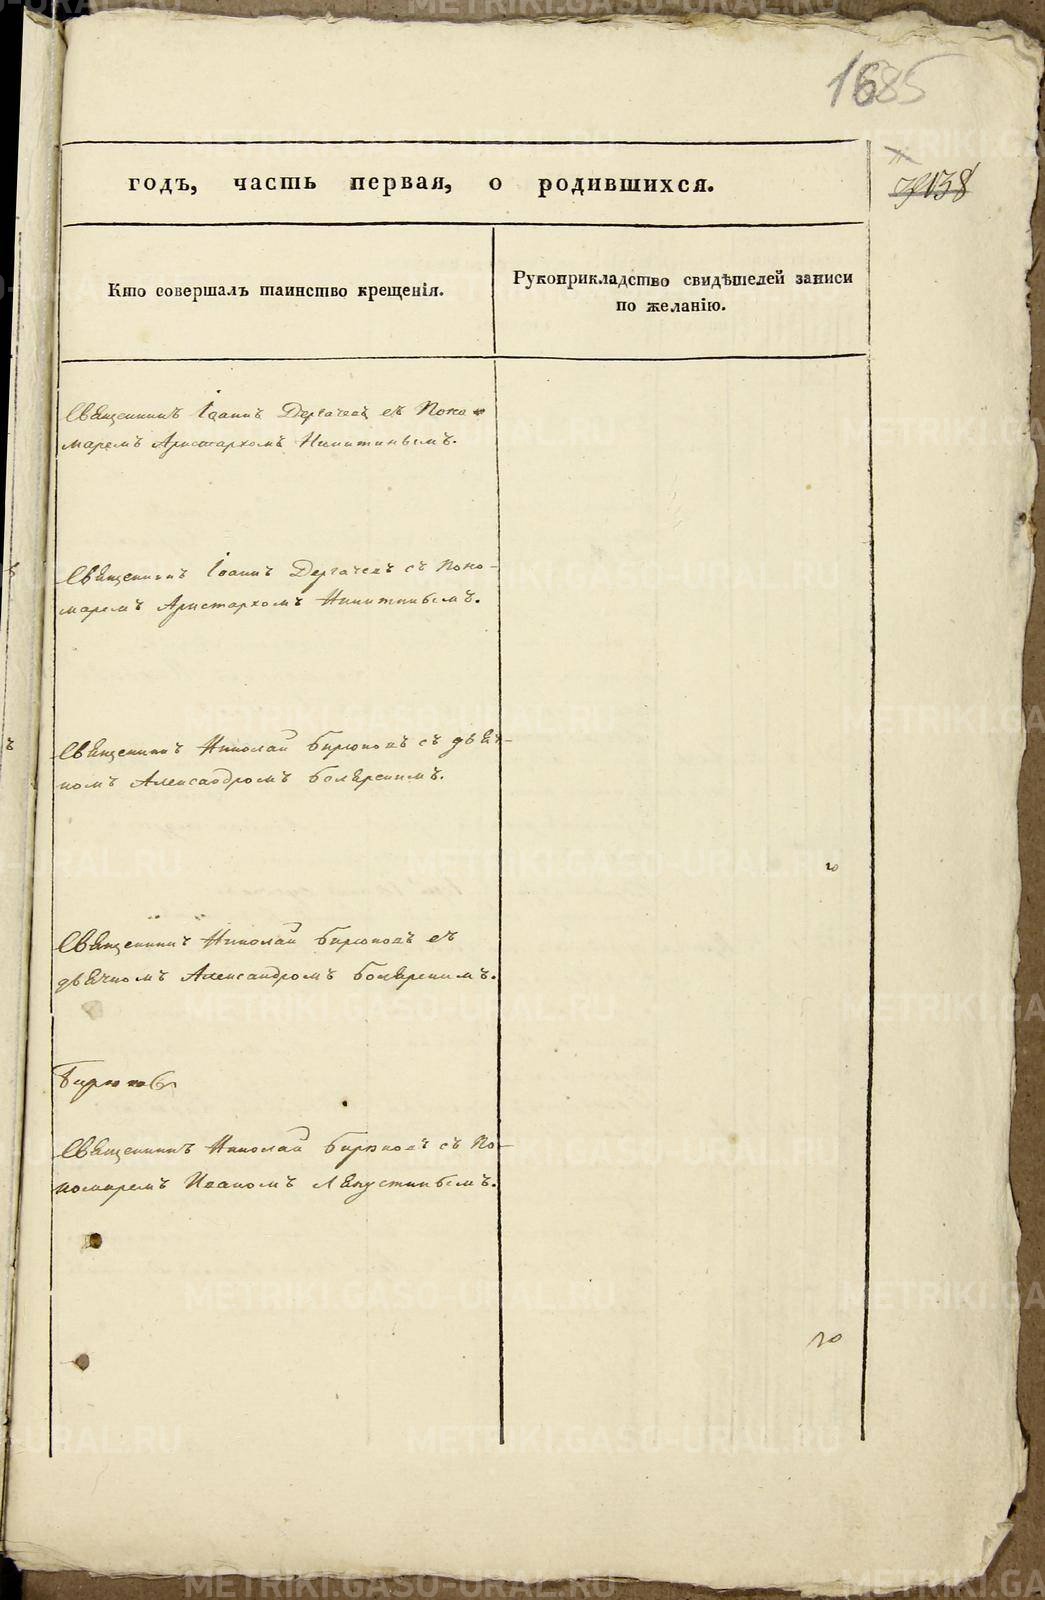 1685
138
годъ, часть первая, о родившихся.
Кто совершалъ таинство крещенія.
Рукоприкладство свидѣтелей записи
по желанію.
Священникъ Іоаннъ Дергачевъ съ Поно-
маремъ Аристархомъ Никитинымъ.
Священникъ Іоаннъ Дергачевъ съ Поно-
маремъ Аристархомъ Никитинымъ.
Священникъ Николай Бирюковъ съ дьяч-
комъ Александромъ Боярскимъ.
Священникъ Николай Бирюковъ съ
дьячкомъ Александромъ Боярскимъ.
Бирюковъ
Священникъ Николай Бирюковъ съ По-
номаремъ Иваномъ
METRIKI.GASO-URAL.RU